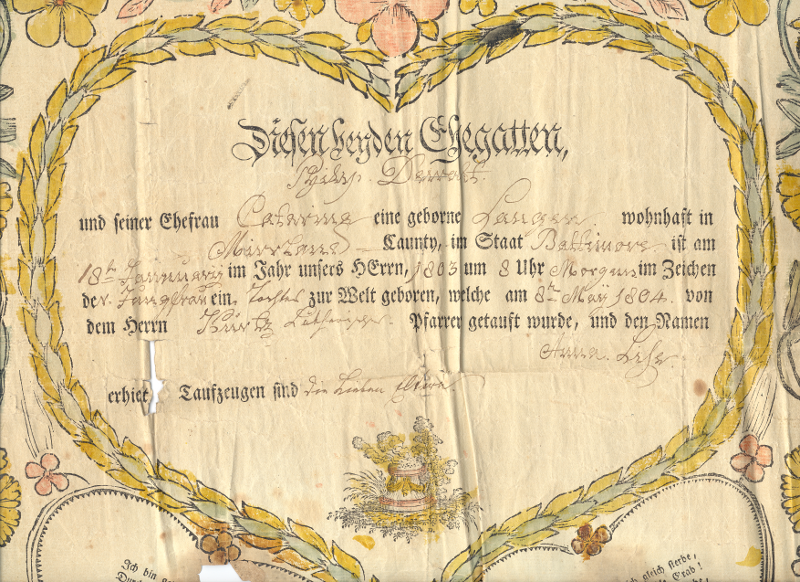 Diesen beyden Ehegatten,
Philip
und seiner Ehefrau Catarina eine geborne Langen wohnhaft in
Mirrland Caunty, im Staat Baltimore ist am
18ten Jannuary im Jahr unsers HErrn, 1803 um 8 Uhr Morgens im Zeichen
der Jungfrau ein Tochter zur Welt geboren, welche am 8ten May 1804. von
dem Herrn Kurtz Pfarrer getauft wurde, und den Namen
Anna
erhiet Taufzeugen sind die
Ich bin
gleich sterbe,
Grab!